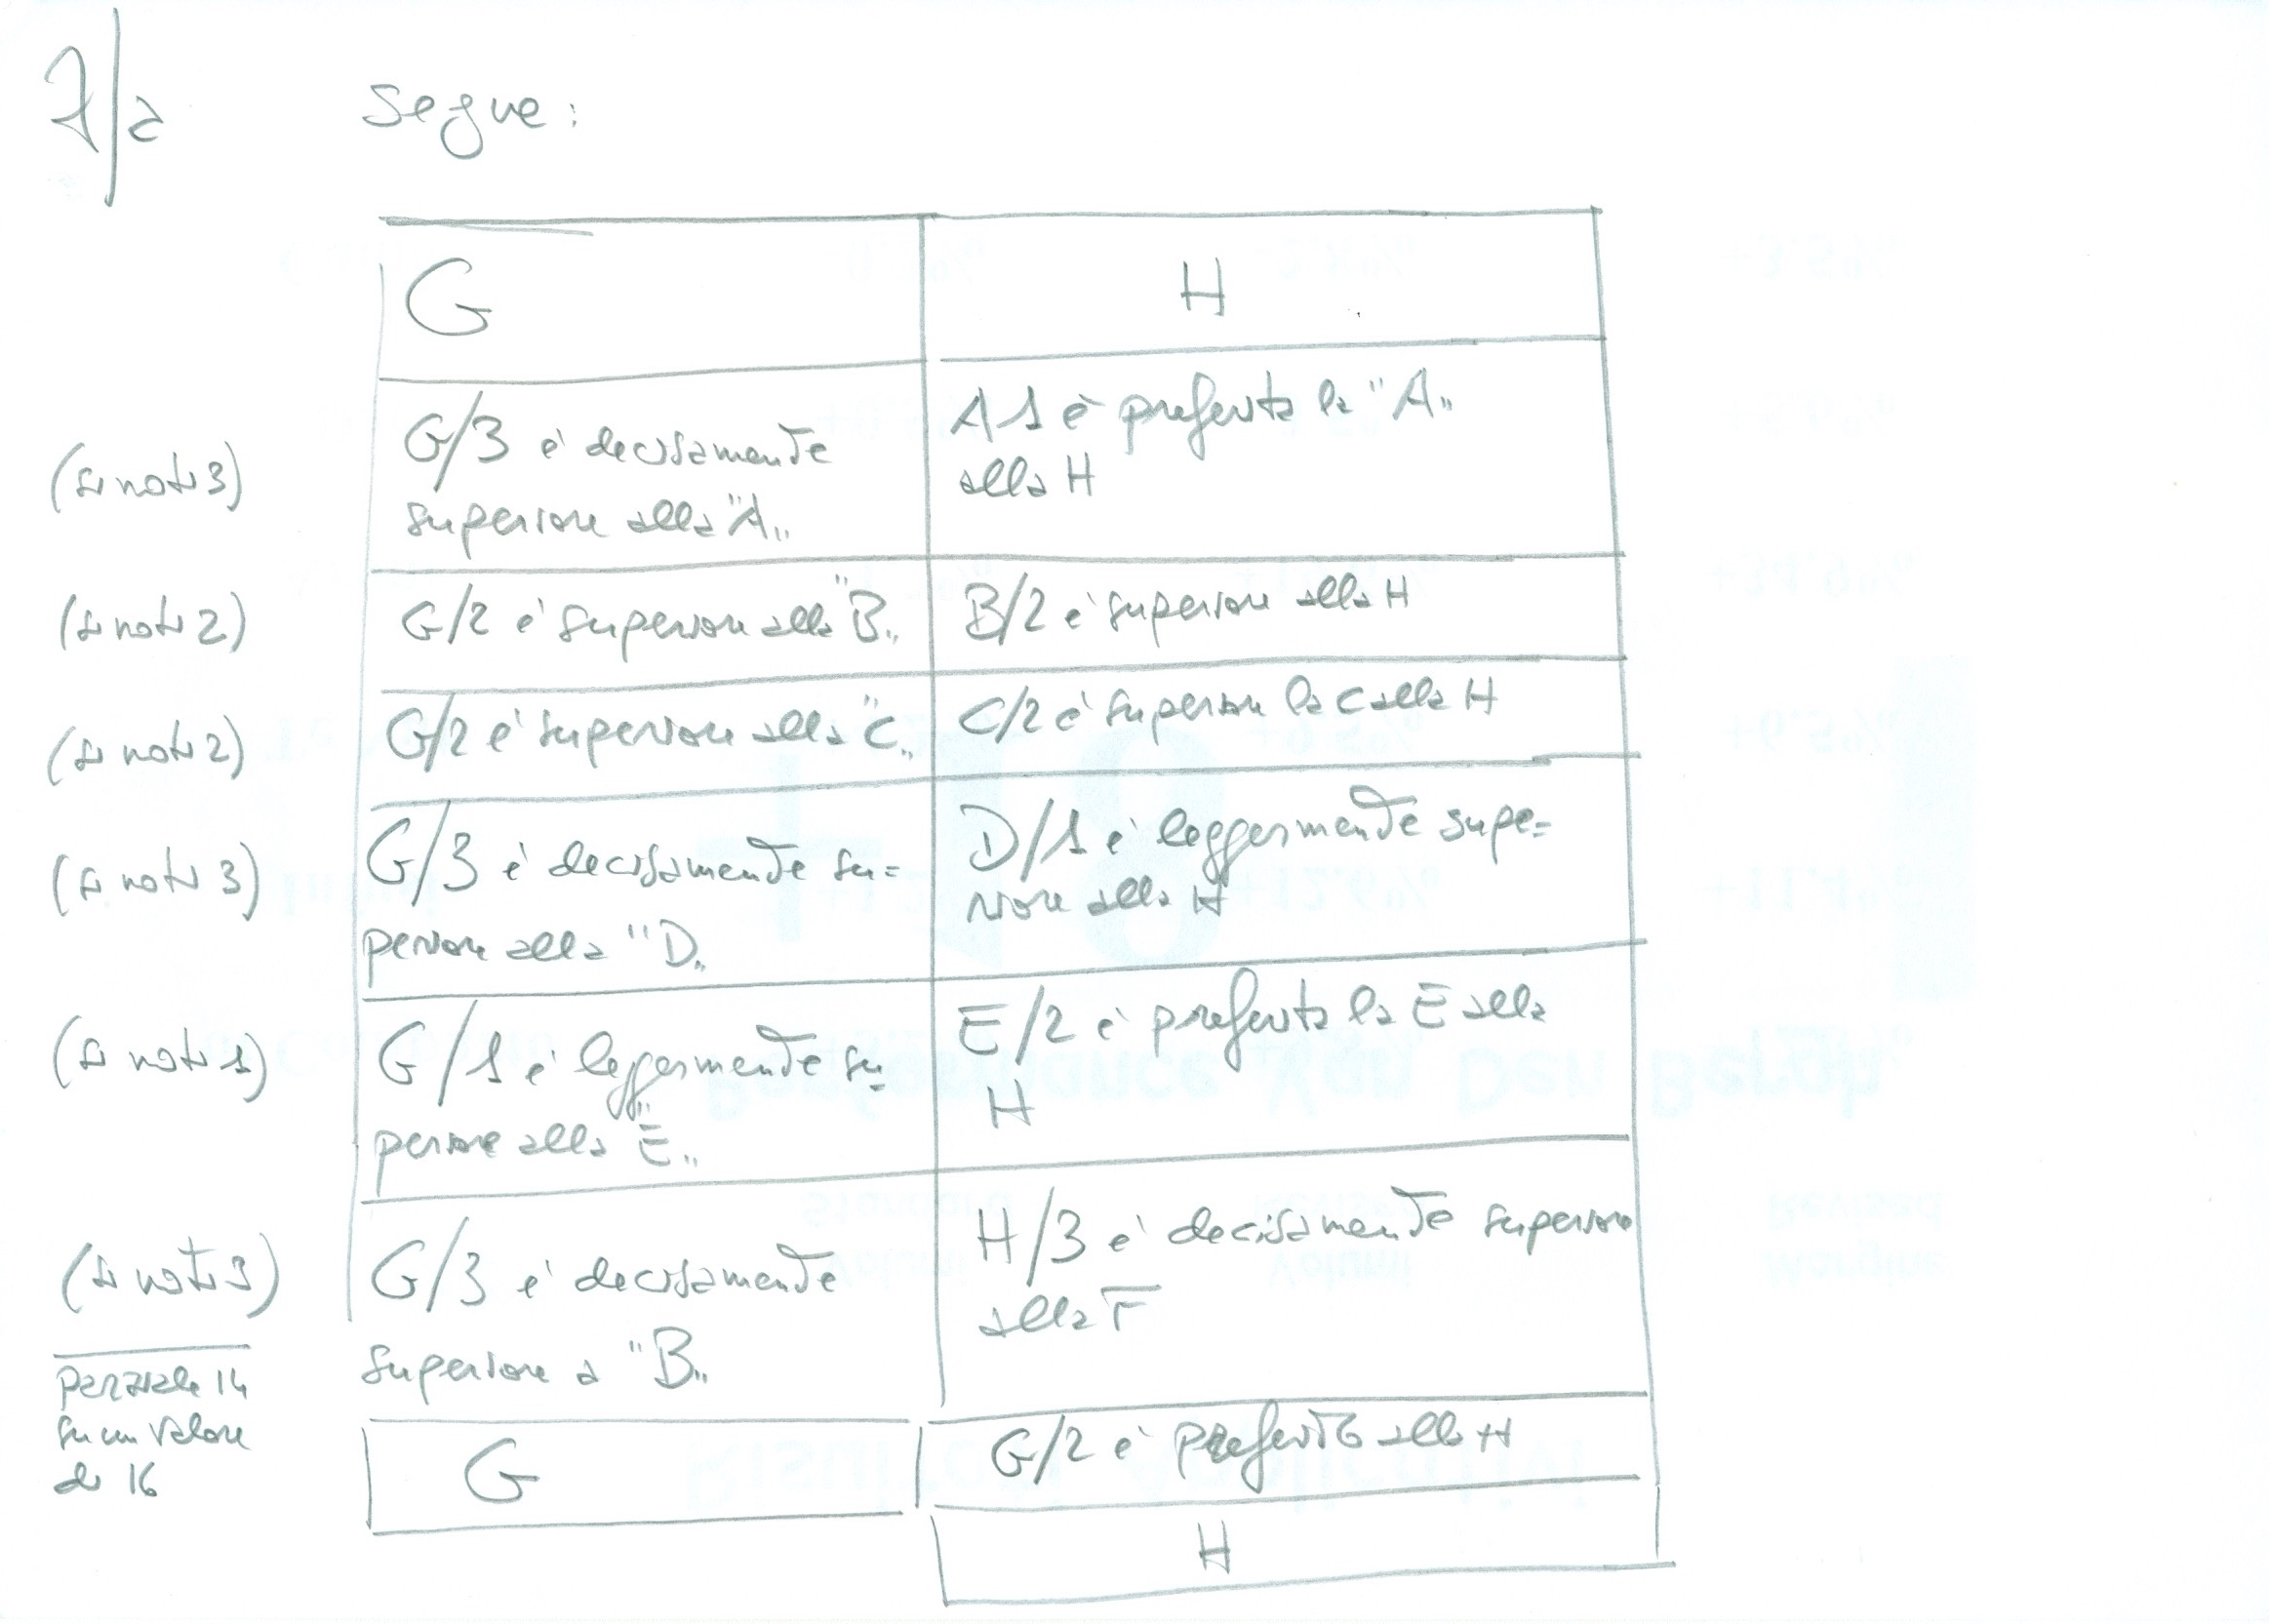 7/a Segue:
G H
(si noti 3) G/3 è decisamente
superiore alla "A"
A1 è preferita la "A"
alla H
(si noti 2) G/2 è superiore alla "B" B/2 è superiore alla H
(si noti 2) G/2 è superiore alla "C" C/2 è superiore la C alla H
(si noti 3) G/3 è decisamente su=
periore alla "D"
D/1 è leggermente supe=
riore alla H
(si noti 1) G/1 è leggermente su=
periore alla "E"
E/2 è preferita la E alla
H
(si noti 3) G/3 è decisamente
superiore a "B"
H/3 è decisamente superiore
alla F
Parziale 14
su un valore
di 16
G G/2 è preferita alla H
H